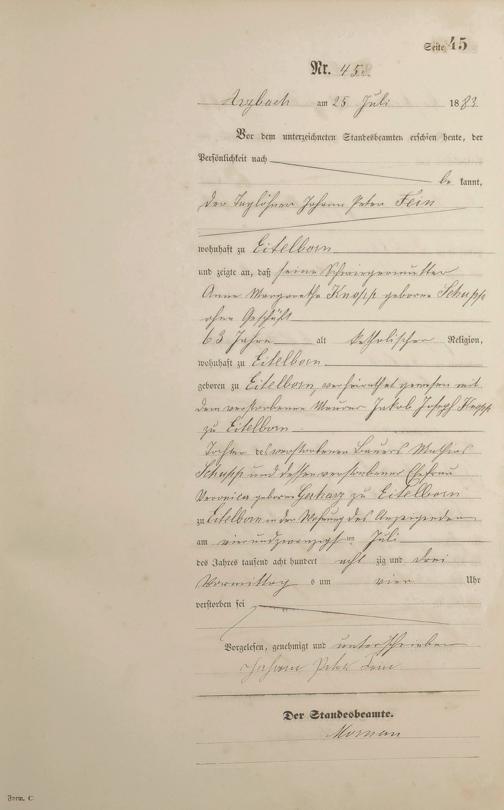 Seite 45
Nr. 45.
Arzbach am 25 Juli 1883.
Vor dem unterzeichneten Standesbeamten erschien heute, der
Persönlichkeit nach
be kannt,
der Taglöhner Johann Peter Fein
wohnhaft zu Eitelborn
und zeigte an, daß seine Schwiegermutter
Anna Margaretha Knopp geborne Schupp
ohne Geschäft
63 Jahre alt katholischer Religion,
wohnhaft zu Eitelborn
geboren zu Eitelborn, verheirathet gewesen mit
dem verstorbenen Maurer Jakob Joseph Knopp
zu Eitelborn
Tochter des verstorbenen Bauers Mathias
Schupp und dessen verstorbener Ehefrau
Veronica geborne zu Eitelborn
zu Eitelborn in der Wohnung des Anzeigenden
am vierundzwanzigsten Juli
des Jahres tausend acht hundert acht zig und drei
Vormittag s um vier Uhr
verstorben sei
Vorgelesen, genehmigt und unterschrieben
Johann Peter Fein
Der Standesbeamte.
Form. C